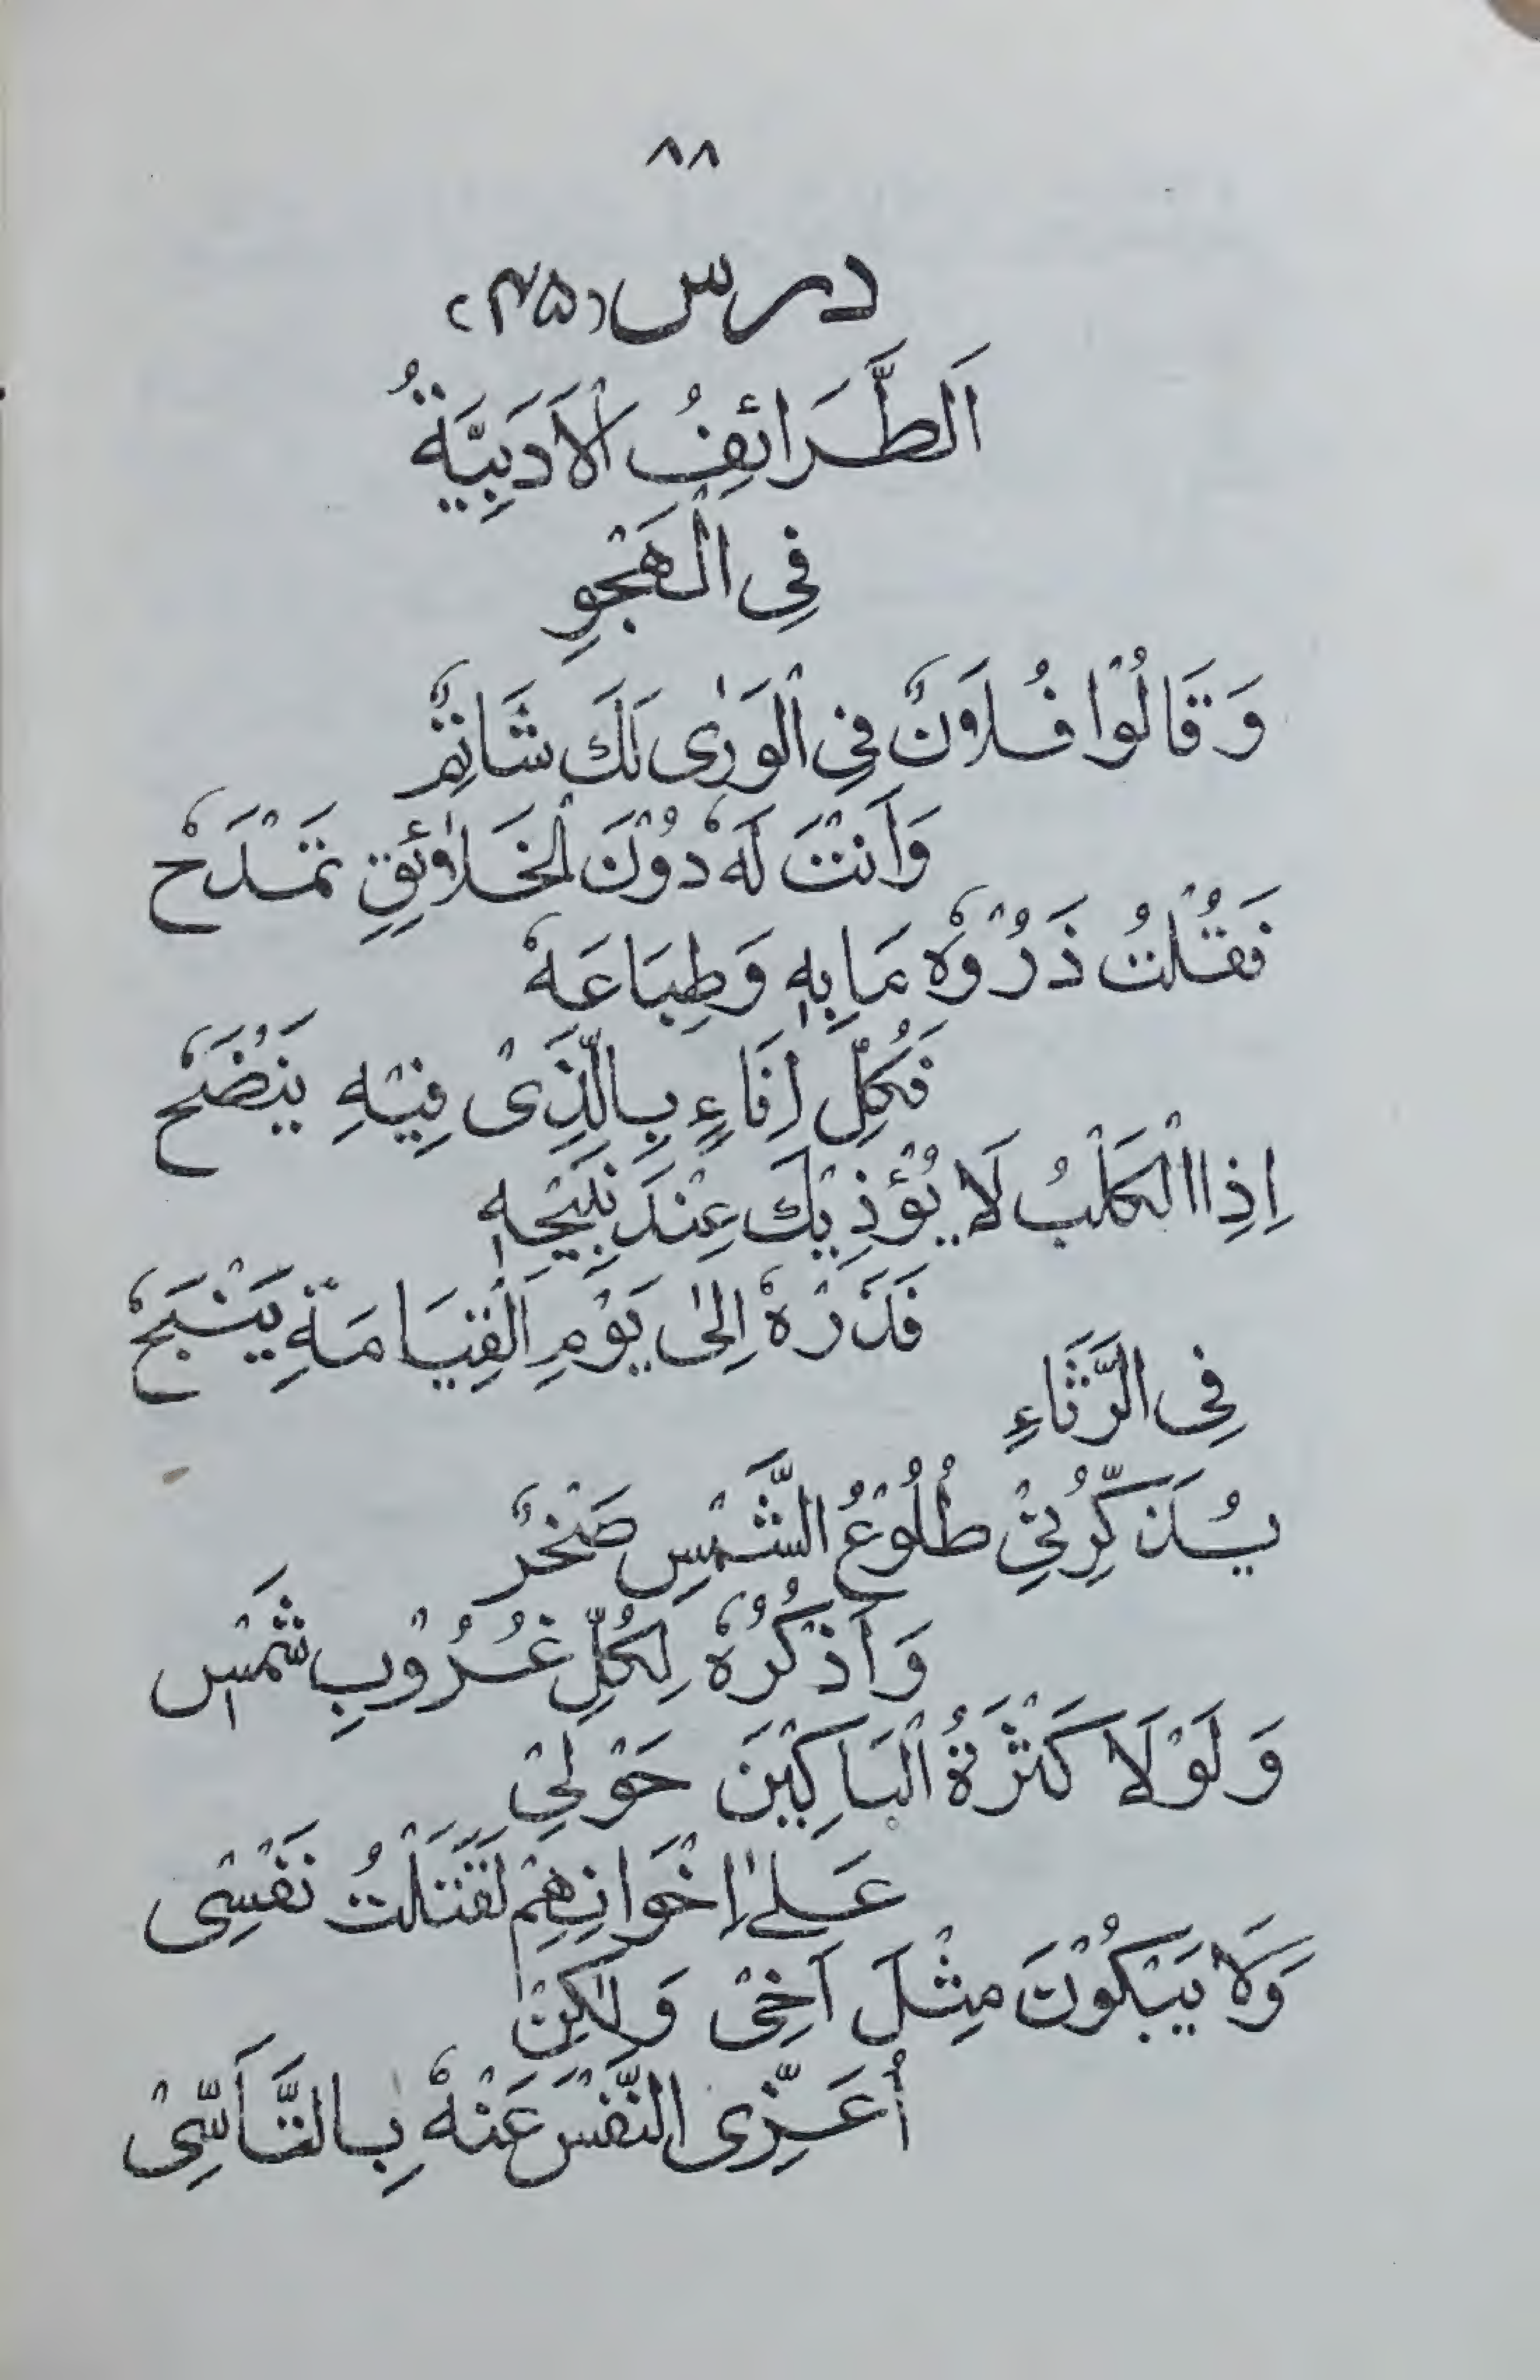 ۸۸
درس (۴۵)
اَلطَّرَائِفُ الْاَدَبِيَّةُ
فِی الْهَجْوِ
وَقَالُوْا فُلَانٌ فِی الْوَرٰی لَكَ شَاتِمٌ
وَاَنْتَ لَهٗ دُوْنَ الْخَلَائِقِ تَمْدَحٗ
فَقُلْتُ ذَرُوْهُ مَا بِهٖ وَطِبَاعَهٗ
فَكُلُّ اِنَاءٍ بِالَّذِیْ فِيْهِ يَنْضَحٗ
اِذِا الْكَلْبُ لَا يُؤْذِيْكَ عِنْدَ نَبِيْحِهٖ
فَذَرْهُ اِلٰی يَوْمِ الْقِيَامَةِ يَنْبَحٗ
فِی الرَّثَاءِ
يُذَكِّرُنِیْ طُلُوْعُ الشَّمْسِ صَخْرٌ
وَاَذْكُرُهٗ لِكُلِّ غُرُوْبِ شَمْسٖ
وَلَوْلَا كَثْرَةُ الْبَاكِيْنَ حَوْلِیْ
عَلٰی اِخْوَانِهِمْ لَقَتَلْتُ نَفْسِی
وَلَا يَبْكُوْنَ مِثْلَ اَخِیْ وَلٰكِنْ
اُعَزِّی النَّفْسَ عَنْهُ بِالتَّاَسِّیْ